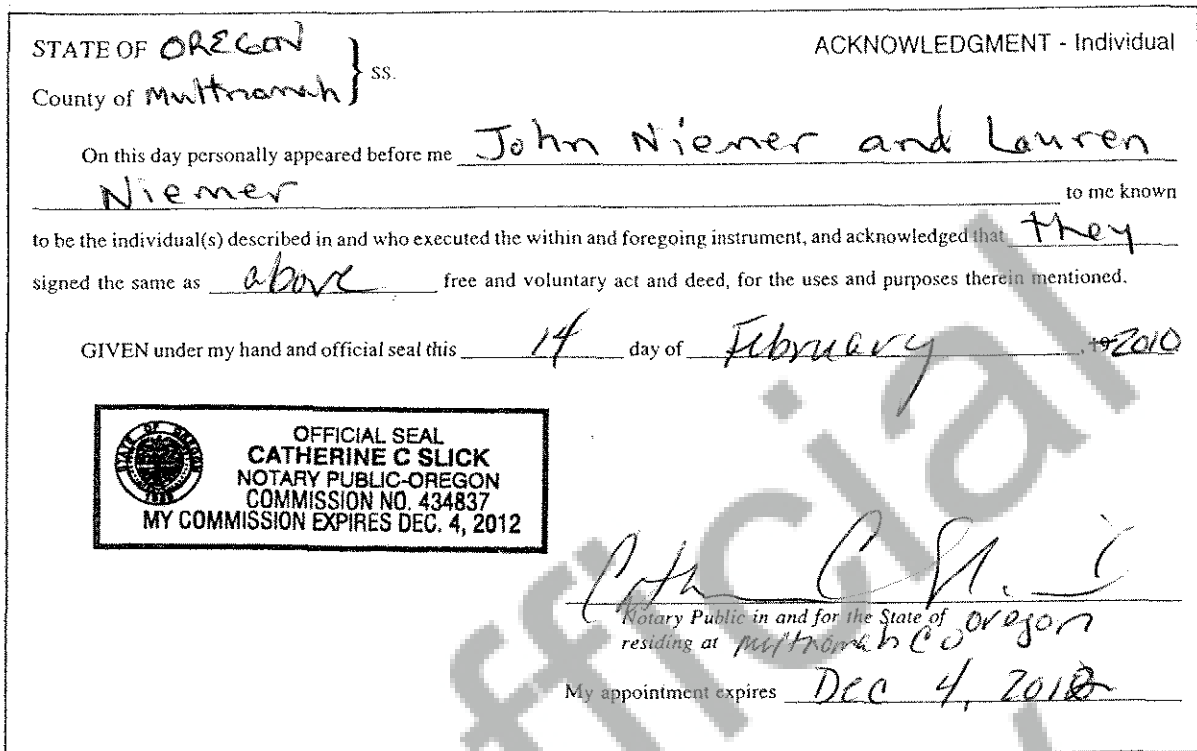 STATE OF OREGON } ss. ACKNOWLEDGMENT - Individual
County of Multnomah
On this day personally appeared before me John Niemer and Lauren
Niemer to me known
to be the individual(s) described in and who executed the within and foregoing instrument, and acknowledged that they
signed the same as above free and voluntary act and deed, for the uses and purposes therein mentioned.
GIVEN under my hand and official seal this 14 day of February, 19 2010
STATE OF OREGON
1859
OFFICIAL SEAL
CATHERINE C SLICK
NOTARY PUBLIC-OREGON
COMMISSION NO. 434837
MY COMMISSION EXPIRES DEC. 4, 2012
Notary Public in and for the State of Oregon
residing at Multnomah Co
My appointment expires Dec 4, 2012
fficial